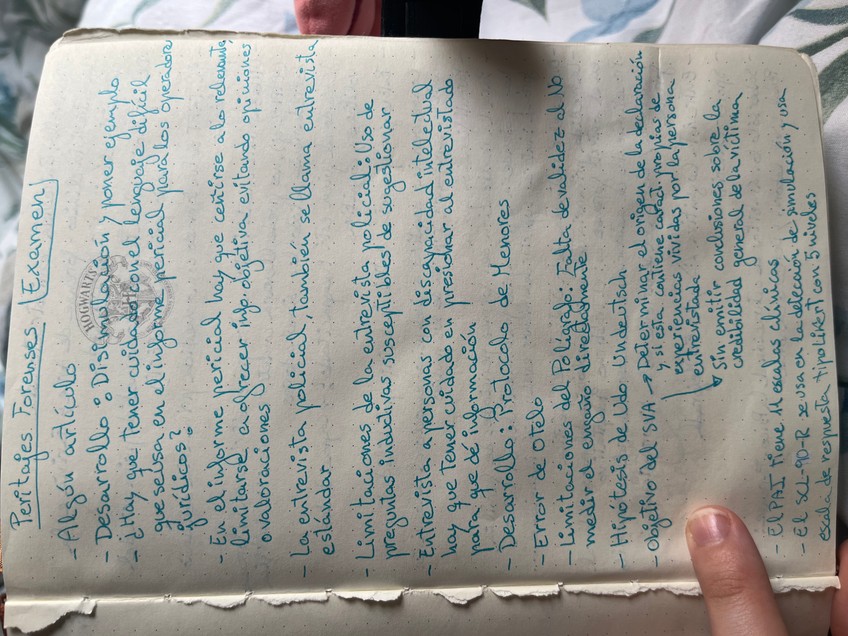 Peritajes Forenses (Examen)
- Algún artículo
- Desarrollo: Disimulación y poner ejemplo
- ¿Hay que tener cuidado con el lenguaje difícil
que se usa en el informe pericial para los operadores
jurídicos?
- En el informe pericial hay que ceñirse a lo relevante,
limitarse a ofrecer info. objetiva evitando opiniones
o valoraciones
- La entrevista policial, también se llama entrevista
estándar
- Limitaciones de la entrevista policial: Uso de
preguntas inductivas susceptibles de sugestionar
- Entrevista a personas con discapacidad intelectual
hay que tener cuidado en presionar al entrevistado
para que de información
- Desarrollo: Protocolo de Menores
- Error de Otelo
- Limitaciones del Polígrafo: Falta de validez al No
medir el engaño directamente
- Hipótesis de Udo Undeutsch
- Objetivo del SVA → Determinar el origen de la declaración
y si esta contiene caract. propias de
experiencias vividas por la persona
entrevistada
Sin emitir conclusiones sobre la
credibilidad general de la víctima
- El PAI tiene 11 escalas clínicas
- El SCL-90-R se usa en la detección de simulación y usa
escala de respuesta tipo likert con 5 niveles
HOGWARTS